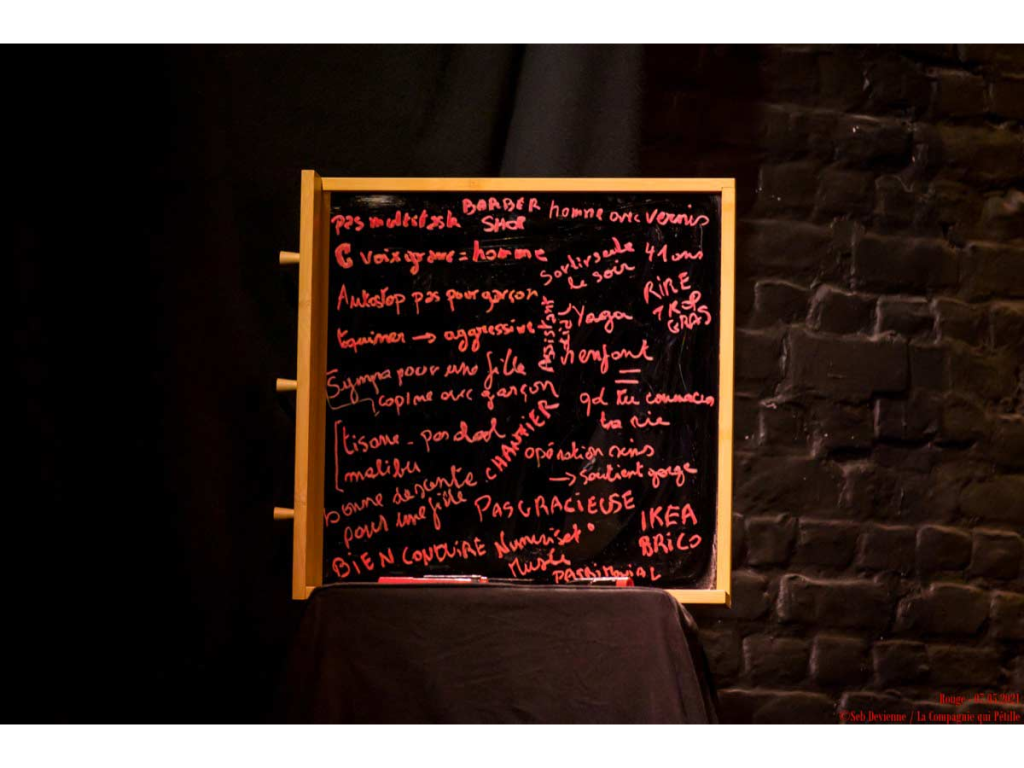 BARBER
SHOP
pas multitask
homme avec vernis
voix grave = homme
Sortir seule
le soir
41 ans
RIRE
TROP
GRAS
Autostop pas pour garçon
Assistant
Yaga
→ aggressive
enfant
=
Sympa pour une fille
copine avec garçon
qd tu commences
ta vie
CHANTIER
tisane - pas
malibu
opération seins
→ Soutient gorge
bonne descente
pour une fille
PAS GRACIEUSE
IKEA
BRICO
BIEN CONDUIRE
Musclé
Rouge - 07/05/2021
© Seb Devienne / La Compagnie qui Pétille